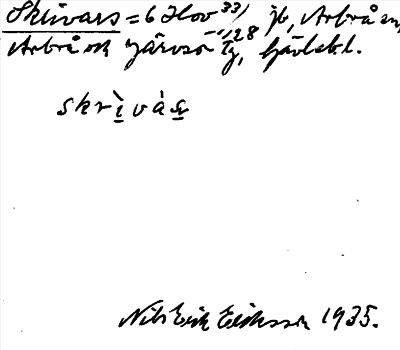 Skrivars = 6 Hov 33/128 jb, Arbrå sn,
Arbrå och Järvsö Tg, Gävleb.l.
skrìvàs̲
Nils Erik Eriksson 1935.